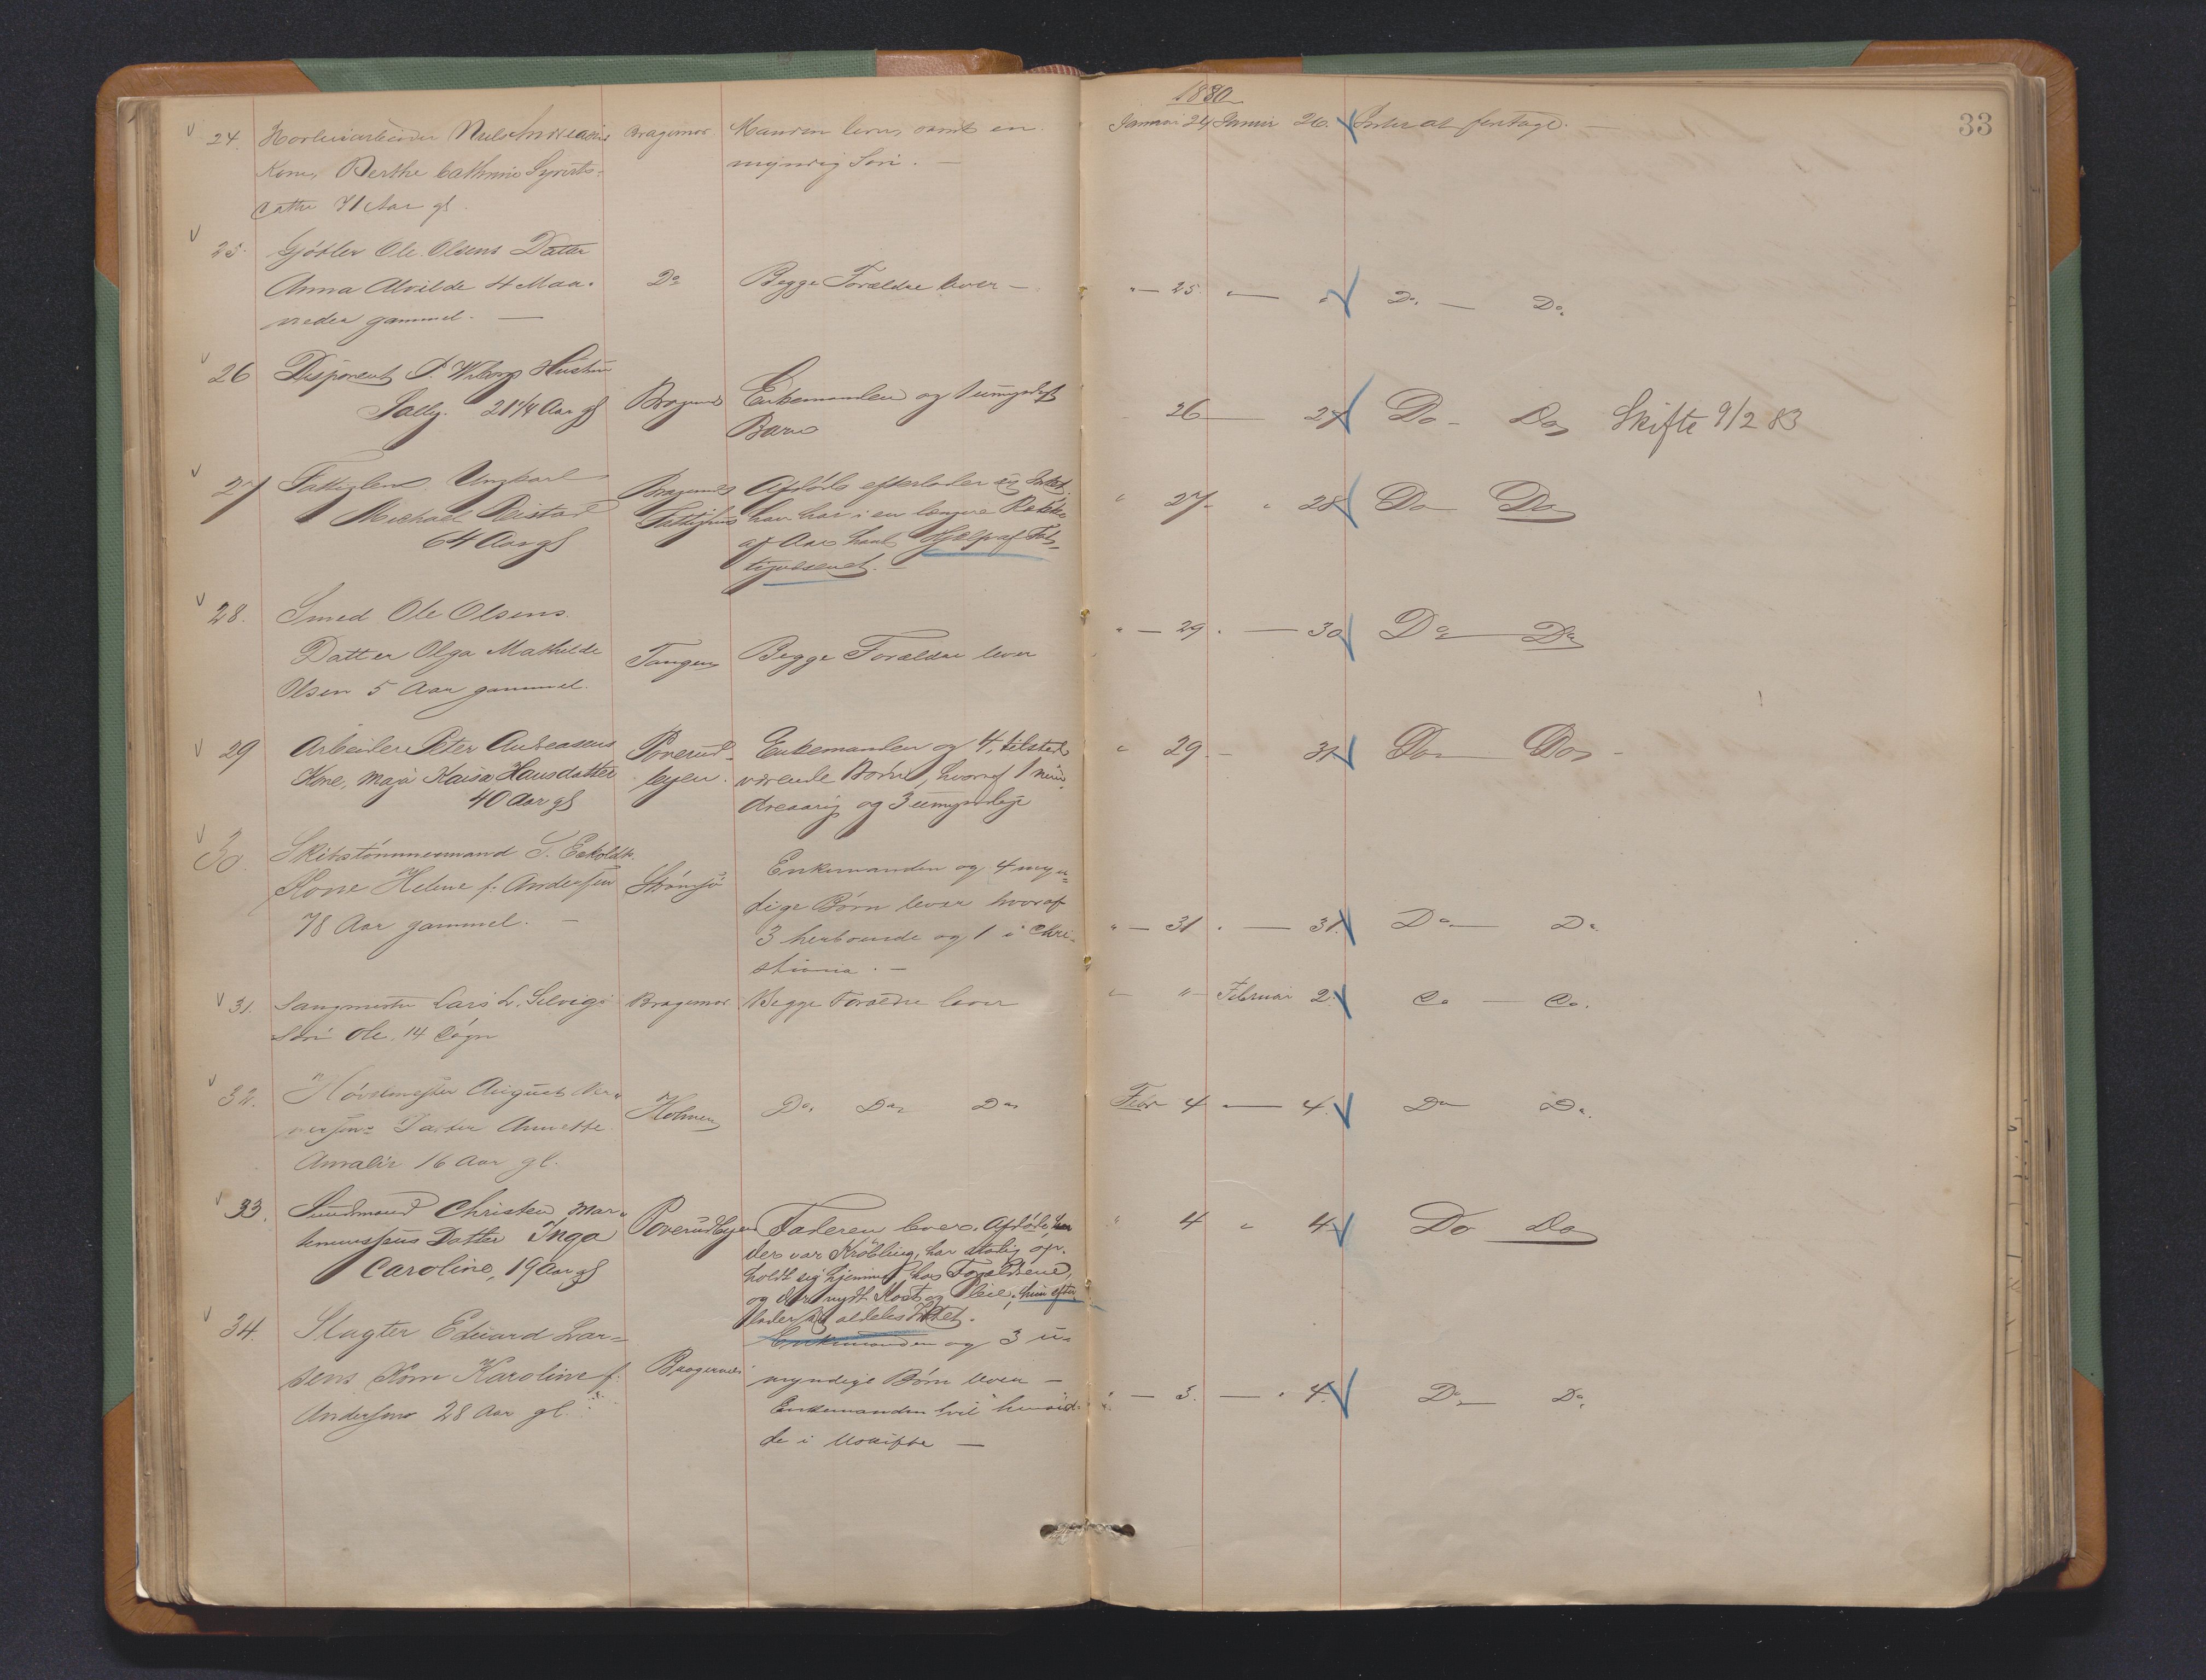 1880
33
24. Nils Andreasens Bragernes Manden lever, samt en Januar 24 Januar 26. Intet at foretage. —
Kone, Berthe Cathrine Syverts- myndig Søn. —
datter 71 Aar gl.
25. Gjørtler Ole Olsens Datter
Anna Alvilde 4 Maa- Do Begge Forældre lever — " — 25. " — " Do. — Do.
neder gammel. —
26 Disponent P. Wiborgs Hustru
Sally. 21 1/4 Aar gl Bragernes Enkemanden og 1 umyndigt 26 — 27 Do — Do Skifte 9/2 83
Barn
27 Fattiglem, Ungkarl Bragernes Afdøde efterlader sig Intet, " 27 - " 28 Do Do
Michael Reistad Fattighus han har i en længere Række
64 Aar gl af Aar havt Hjælp af Fat-
tigvæsenet. —
28. Smed Ole Olsens
Datter Olga Mathilde Tangen Begge Forældre lever " — 29 . — 30 Do — Do
Olsen 5 Aar gammel.
29 Arbeider Peter Andreasens Poverud- Enkemanden og 4, tilstede " 29 - 31 Do Do -
Kone, Maja Kaisa Hansdatter byen. værende Børn, hvoraf 1 min-
40 Aar gl dreaarig og 3 umyndige
30. Skibstømmermand S. Eckoldts
Kone Helene f. Anderssen Strømsø Enkemanden og 4 myn-
78 Aar gammel. — dige Børn lever hvoraf
3 herboende og 1 i Chri- " — 31 . — 31. Do — Do.
stiania. —
31. Sangmester Lars L. Selvigs Bragernes Begge Forældre lever " " Februar 2. Do — Do.
Søn Ole. 14 Døgn
32. August
Datter Annette Holmen Do. Do. Do. Febr 4 — 4. Do Do.
Amalie 16 Aar gl.
33. Sundmand Christen Mar- Poverudbyen Faderen lever. Afdøde, " 4 " 4 Do Do
kussens Datter Inga der var Krøbling, har stadig op-
Caroline, 19 Aar gl holdt sig hjemme hos Forældrene,
og der nydt Kost og Pleie, hun efter-
lader sig aldeles Intet.
34. Slagter Eduard Lar- Enkemanden og 3 u-
sens Kone Karoline f. Bragernes myndige Børn lever — " — 3. — " 4. Do — Do.
Anderssen 28 Aar gl. Enkemanden vil hensid-
de i Uskifte —